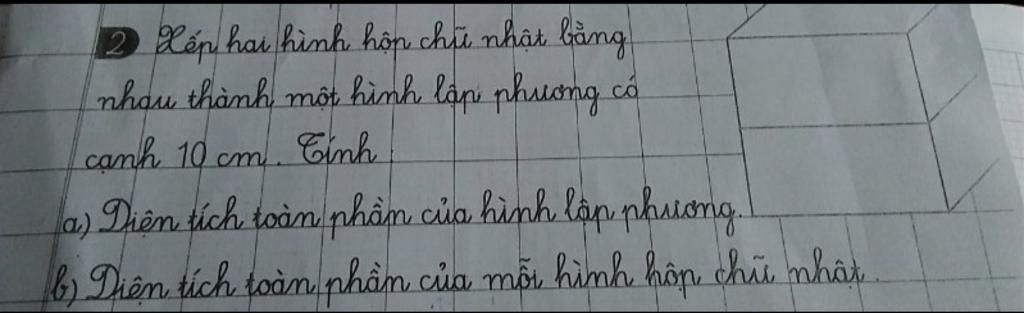 2 Xếp hai hình hộp chữ nhật bằng
nhau thành một hình lập phương có
cạnh 10 cm. Tính
a) Diện tích toàn phần của hình lập phương.
b) Diện tích toàn phần của mỗi hình hộp chữ nhật.